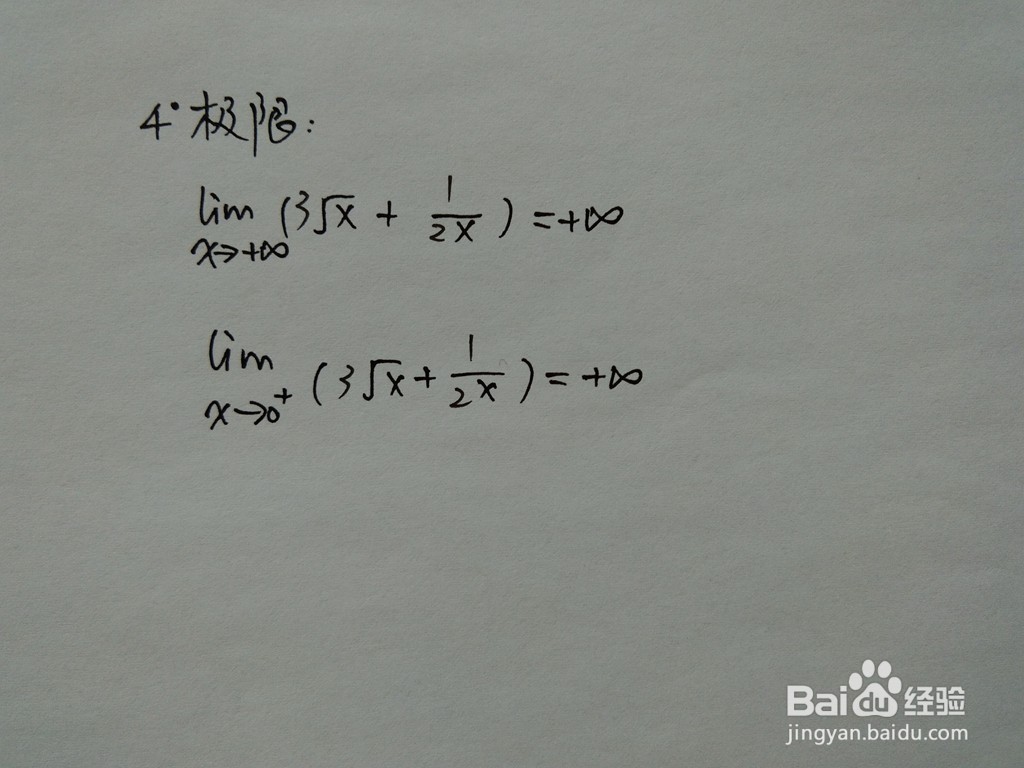 4° 极限:
lim x→+∞ (3√x + 1/2x) = +∞
lim x→0⁺ (3√x + 1/2x) = +∞
Bai du 经验
jingyan.baidu.com